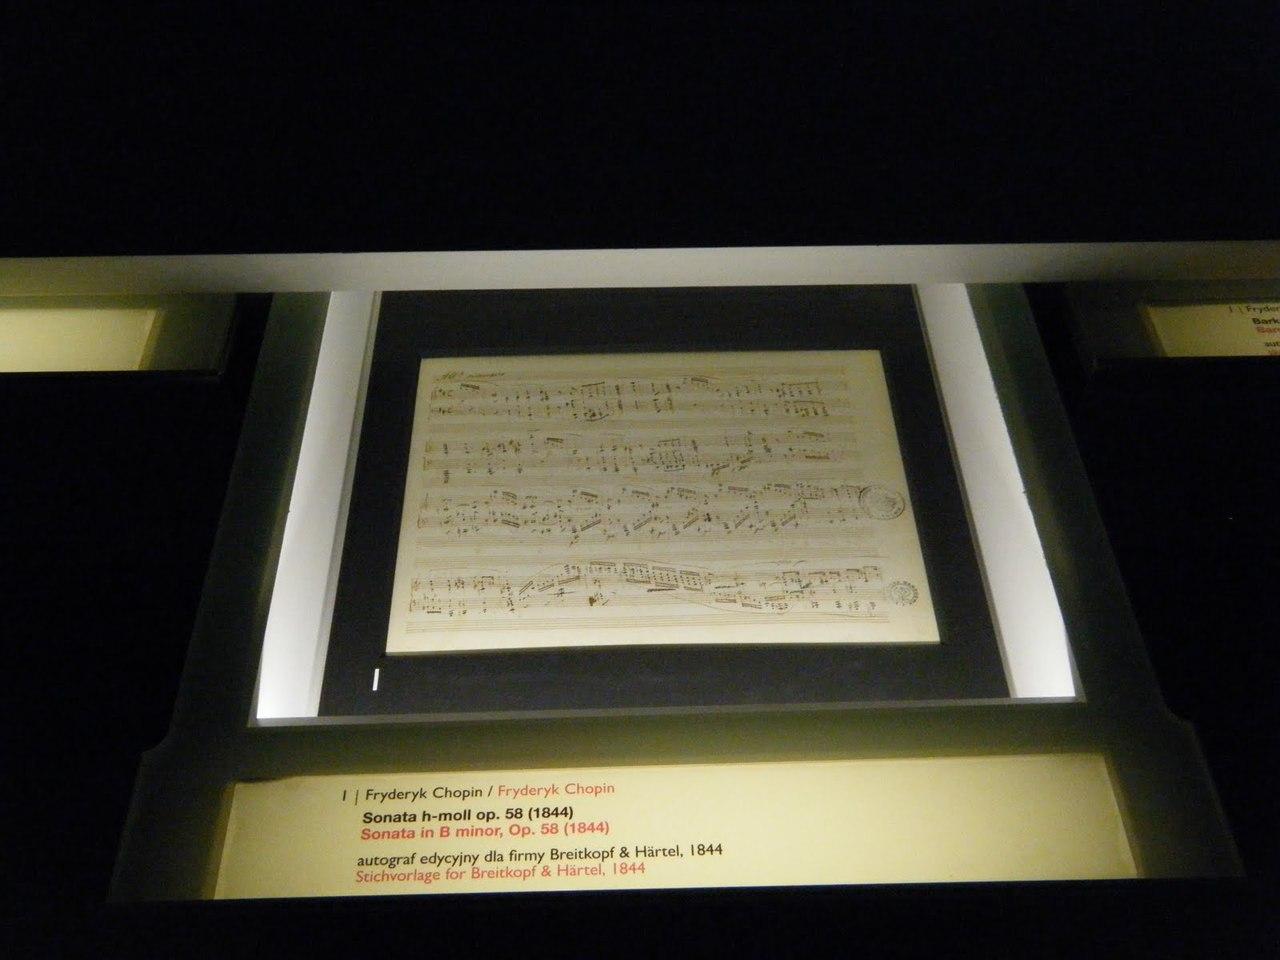 1 | Fryderyk Chopin / Fryderyk Chopin
Sonata h-moll op. 58 (1844)
Sonata in B minor, Op. 58 (1844)
autograf edycyjny dla firmy Breitkopf & Härtel, 1844
Stichvorlage for Breitkopf & Härtel, 1844